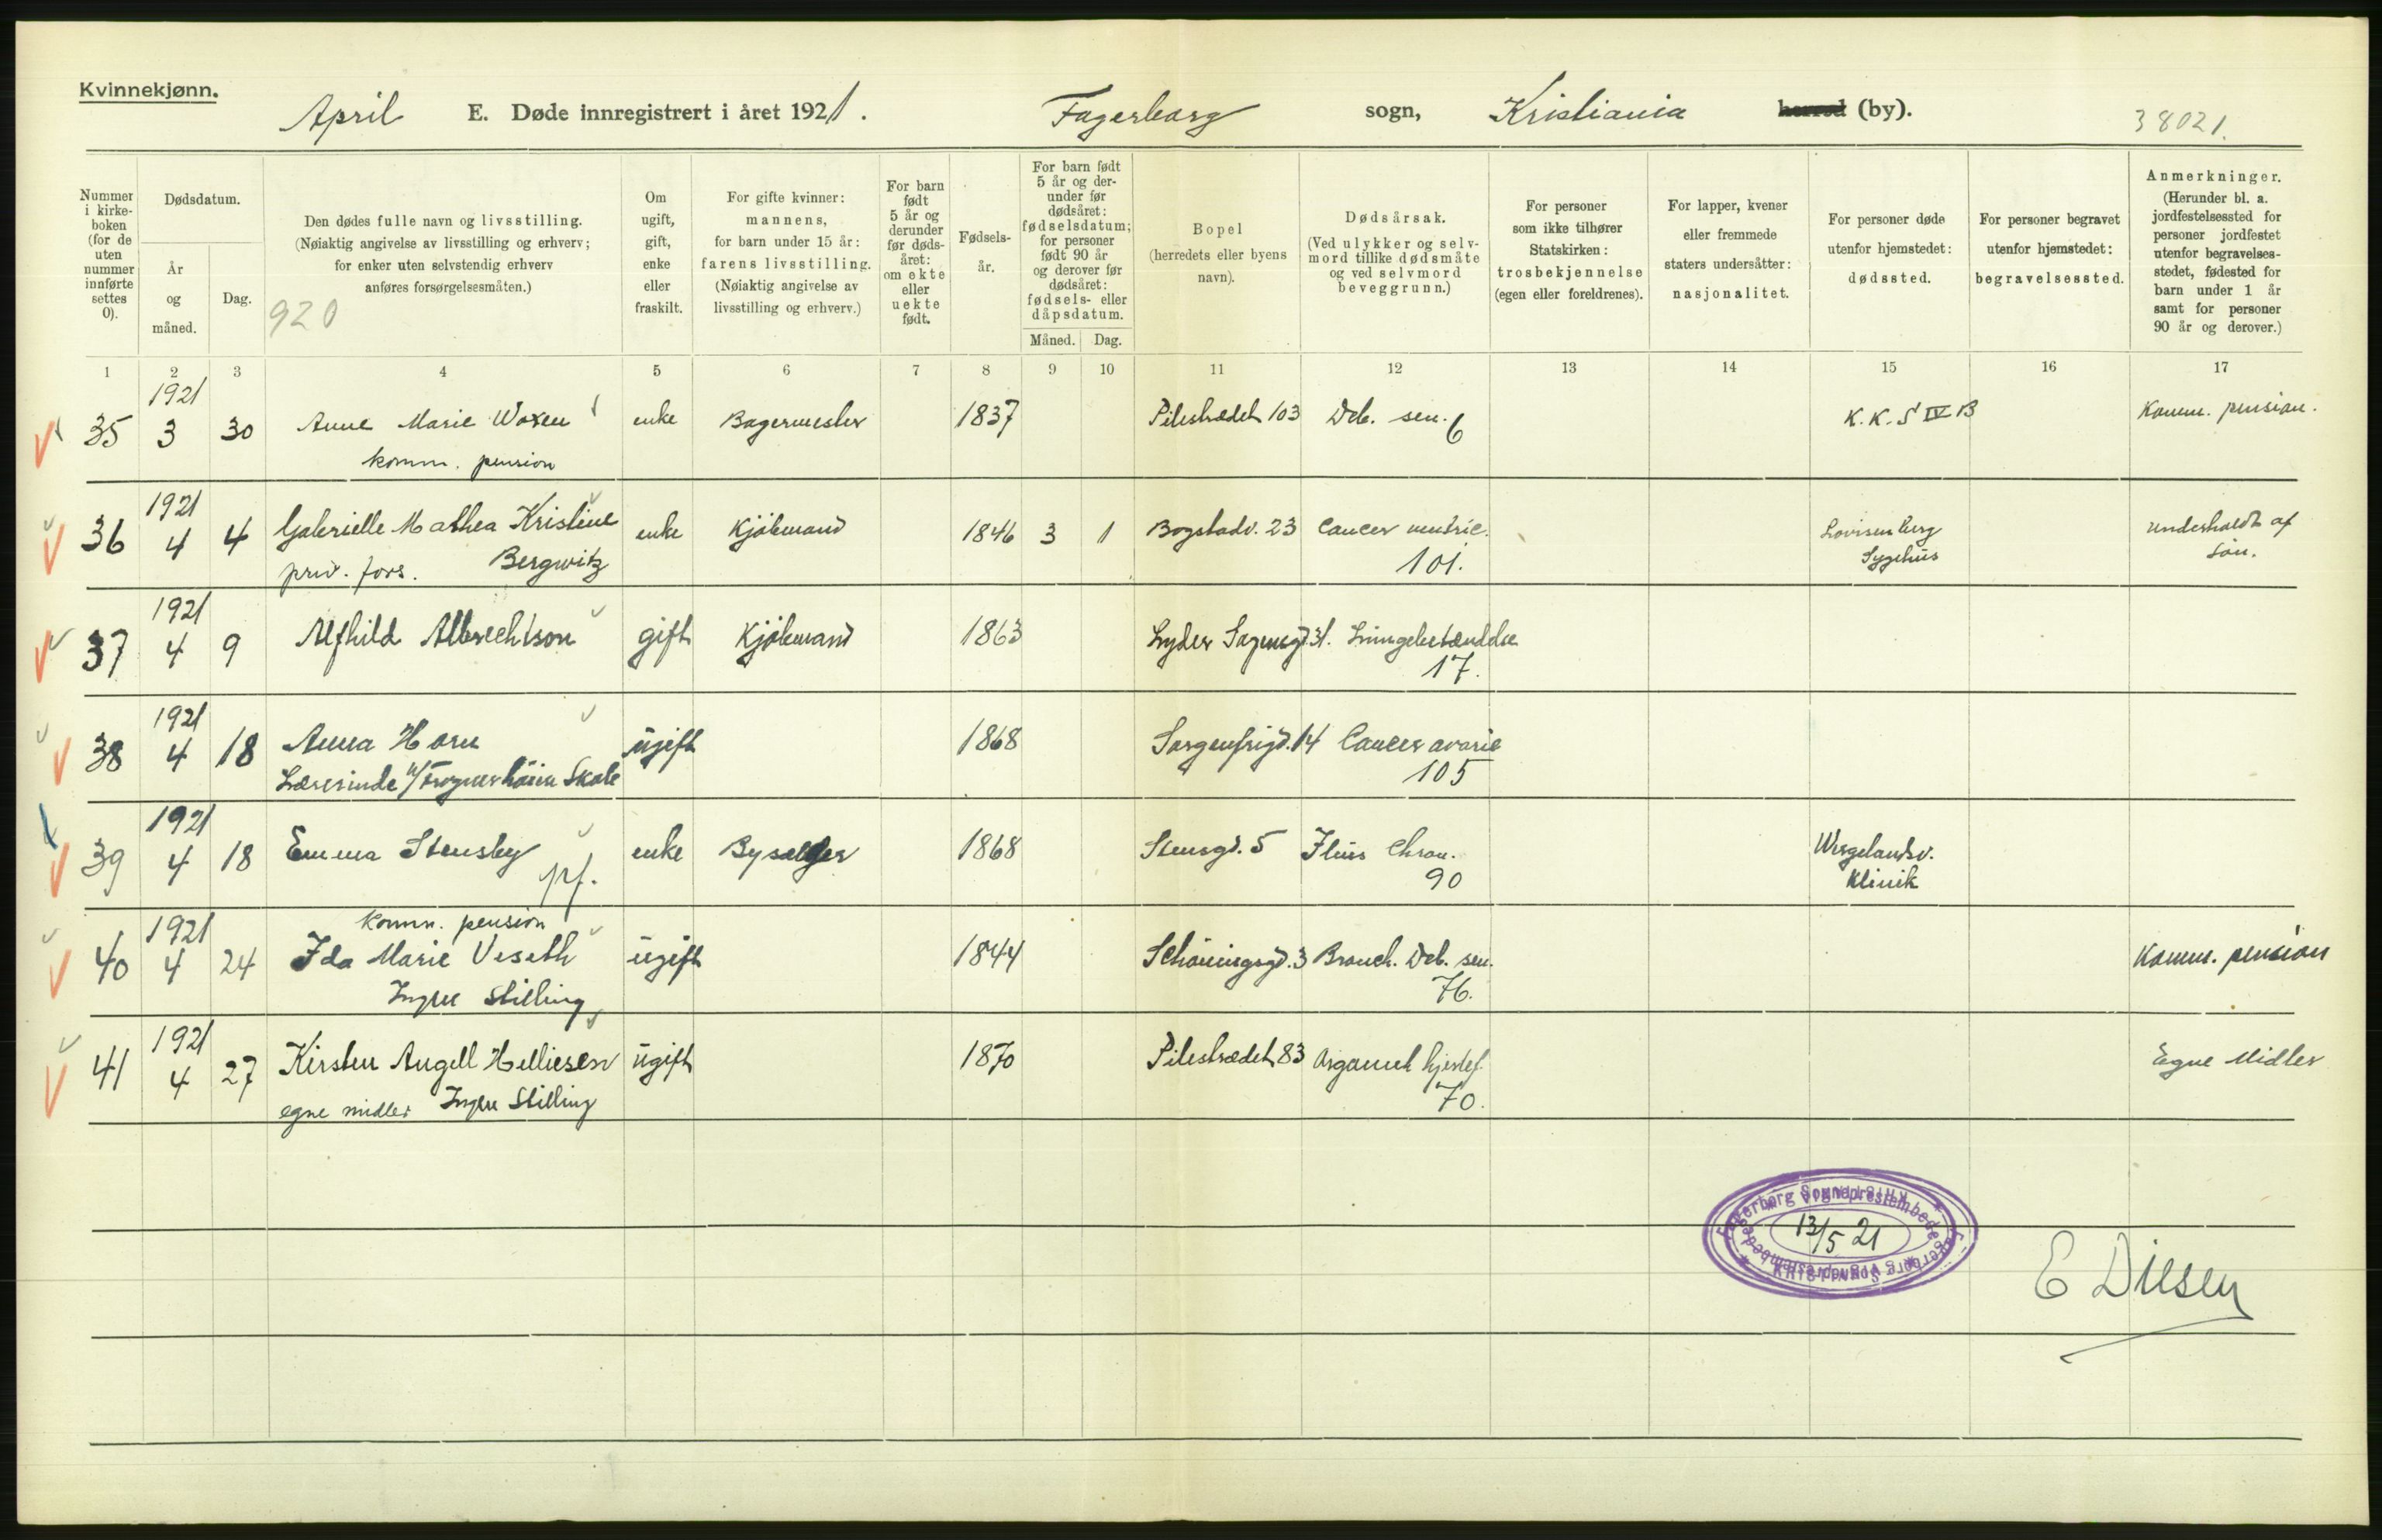 Kvinnekjønn.
April E. Døde innregistrert i året 1921. Fagerborg sogn, Kristiania herred (by). 38021.
Nummer i kirke-boken (for de uten nummer innførte settes 0).
Dødsdatum.
År og måned.
Dag.
Den dødes fulle navn og livsstilling.
(Nøiaktig angivelse av livsstilling og erhverv;
for enker uten selvstendig erhverv
anføres forsørgelsesmåten.)
920
Om ugift, gift, enke eller fraskilt.
For gifte kvinner: mannens, for barn under 15 år: farens livsstilling. (Nøiaktig angivelse av livsstilling og erhverv.)
For barn født 5 år og derunder før døds-året: om ekte eller uekte født.
Fødsels-år.
For barn født 5 år og der-under før dødsåret: fødselsdatum; for personer født 90 år og derover før dødsåret: fødsels- eller dåpsdatum.
Måned. Dag.
Bopel (herredets eller byens navn).
Dødsårsak. (Ved ulykker og selv-mord tillike dødsmåte og ved selvmord beveggrunn.)
For personer som ikke tilhører Statskirken: trosbekjennelse (egen eller foreldrenes).
For lapper, kvener eller fremmede staters undersåtter: nasjonalitet.
For personer døde utenfor hjemstedet: dødssted.
For personer begravet utenfor hjemstedet: begravelsessted.
Anmerkninger. (Herunder bl. a. jordfestelsessted for personer jordfestet utenfor begravelses-stedet, fødested for barn under 1 år samt for personer 90 år og derover.)
1 2 3 4 5 6 7 8 9 10 11 12 13 14 15 16 17
1921
35 3 30 Anne Marie Woxen enke Bagermester 1837 Pilestrædet 103 Deb. sen. 6 K.K.S IV B Komm. pension.
komm. pension
1921
36 4 4 Gabrielle Mathea Kristine enke Kjøbmand 1846 3 1 Bogstadv. 23 Cancer ventric. Lovisenberg underholdt af
priv. fors. Bergwitz 101. Sygehus søn.
1921
37 4 9 Alfhild Albrechtson gift Kjøbmand 1863 Lyder Sagensgd. 31. Lungebetændelse
17.
1921
38 4 18 Anna Horn ugift 1868 Sorgenfrigd. 14 Cancer ovarie
Lærerinde v/ Frognerhøien Skole 105
1921
39 4 18 Emma Stensby enke Byselger 1868 Stensgd. 5 Ileus chron. Wergelandsv.
pf. 90 Klinik
komm. pension
1921
40 4 24 Ida Marie Veseth ugift 1844 Schøningsgd. 3 Bronch. Deb. sen. Komm. pension
Ingen Stilling 76.
1921
41 4 27 Kirsten Angell Helliesen ugift 1870 Pilestrædet 83 Organisk hjertef. Egne Midler
egne midler Ingen Stilling 70.
Fagerborg Sogneprestembede
13/5 21
KRISTIANIA
E Diesen